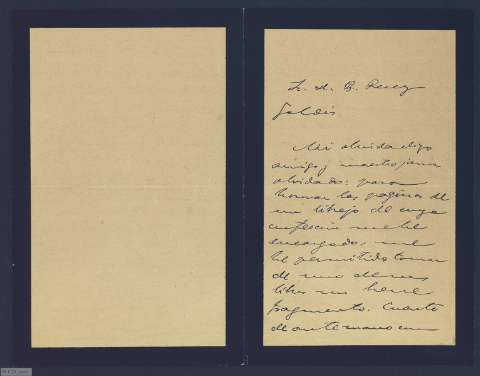 Sr. D. B. Perez
Galdós
Mi olvidadizo
amigo y maestro jamás
olvidado: para
honrar las páginas de
un librejo de cuya
confección me he
encargado, me
he permitido tomar
de uno de sus
libros un breve
fragmento. Cuento
de antemano con